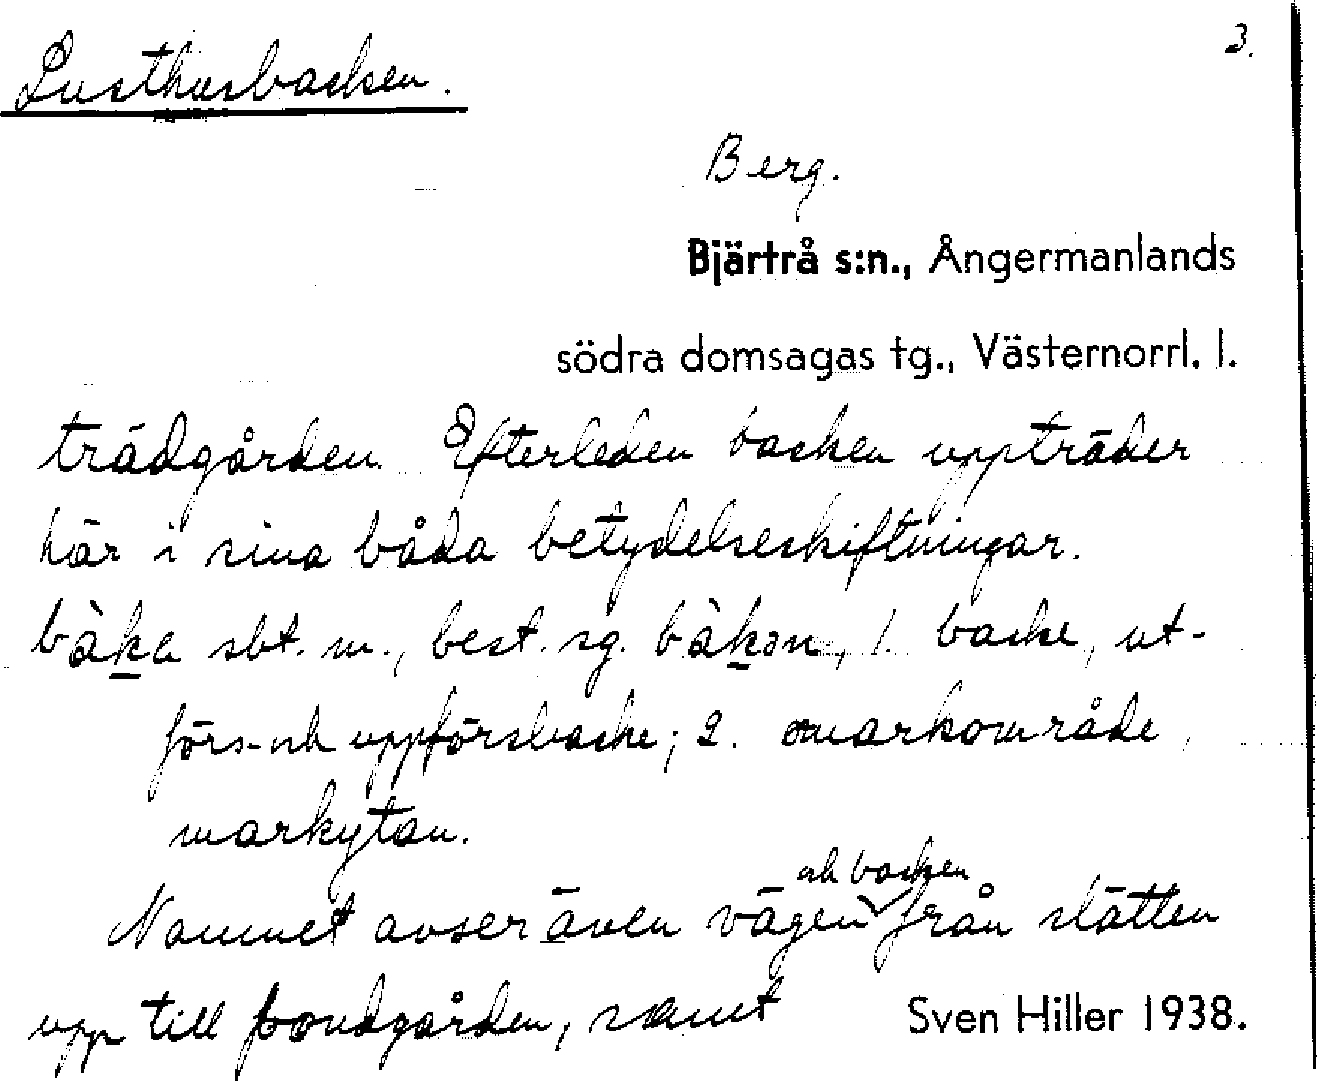 3.
Lusthusbacken.
Berg.
Bjärtrå s:n., Ångermanlands
södra domsagas tg., Västernorrl. l.
trädgården. Efterleden backen uppträder
här i sina båda betydelseskiftningar.
bàka sbt. m., best. sg. bàkɔn, 1. backe, ut-
förs- och uppförsbacke; 2. markområde,
markytan.
och backen
Namnet avser även vägen från slätten
upp till bondgården, samt
Sven Hiller 1938.